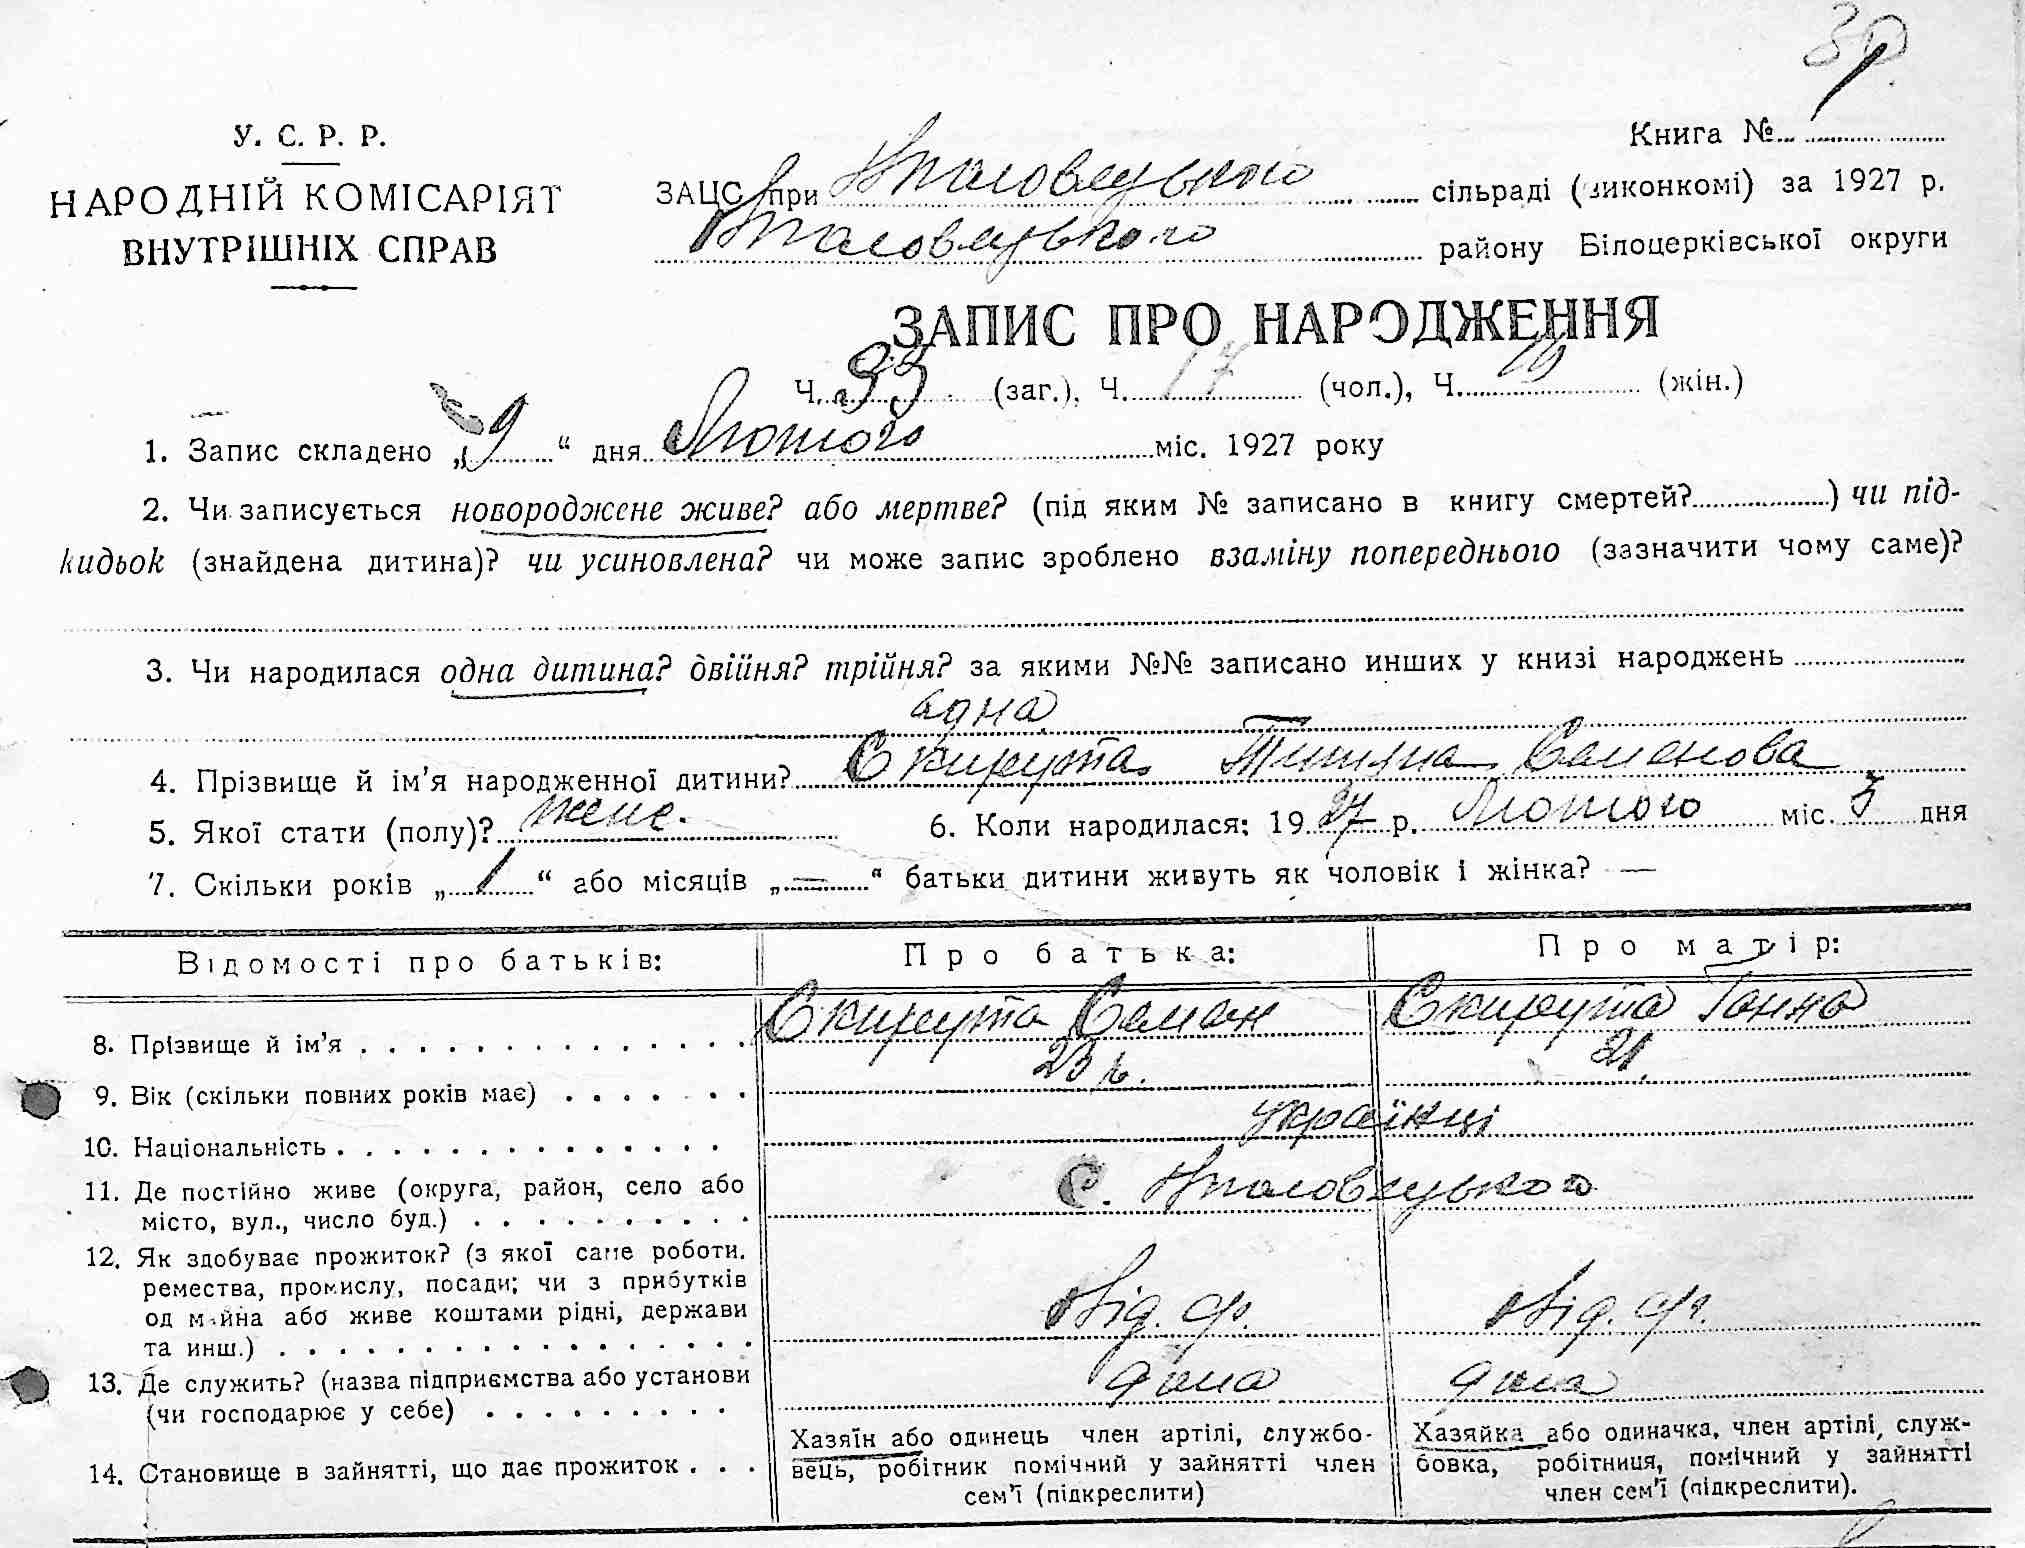 У. С. Р. Р.
НАРОДНІЙ КОМІСАРІЯТ
ВНУТРІШНІХ СПРАВ
Книга №
ЗАЦС при сільраді (виконкомі) за 1927 р.
району Білоцерківської округи
ЗАПИС ПРО НАРОДЖЕННЯ
Ч. 33 (заг.), Ч. 17 (чол.), Ч. (жін.)
1. Запис складено „9“ дня Лютого міс. 1927 року
2. Чи записується новороджене живе? або мертве? (під яким № записано в книгу смертей?) чи під-
кидьок (знайдена дитина)? чи усиновлена? чи може запис зроблено взаміну попереднього (зазначити чому саме)?
3. Чи народилася одна дитина? двійня? трійня? за якими №№ записано инших у книзі народжень
одна
4. Прізвище й ім'я народженної дитини? Скирута Семенова
5. Якої стати (полу)? жене. 6. Коли народилася: 1927 р. Лютого міс. 5 дня
7. Скільки років „1“ або місяців „—“ батьки дитини живуть як чоловік і жінка? —
Відомості про батьків: Про батька: Про матір:
8. Прізвище й ім'я Скирута Семен Скирута Ганна
9. Вік (скільки повних років має) 23 р. 21.
10. Національність українці
11. Де постійно живе (округа, район, село або
місто, вул., число буд.) С.
12. Як здобуває прожиток? (з якої саме роботи.
ремества, промислу, посади; чи з прибутків
од майна або живе коштами рідні, держави
та инш.)
13. Де служить? (назва підприємства або установи
(чи господарює у себе) дома дома
14. Становище в зайнятті, що дає прожиток
Хазяїн або одинець член артілі, службо-
вець, робітник помічний у зайнятті член
сем'ї (підкреслити)
Хазяйка або одиначка, член артілі, служ-
бовка, робітниця, помічний у зайнятті
член сем'ї (підкреслити).